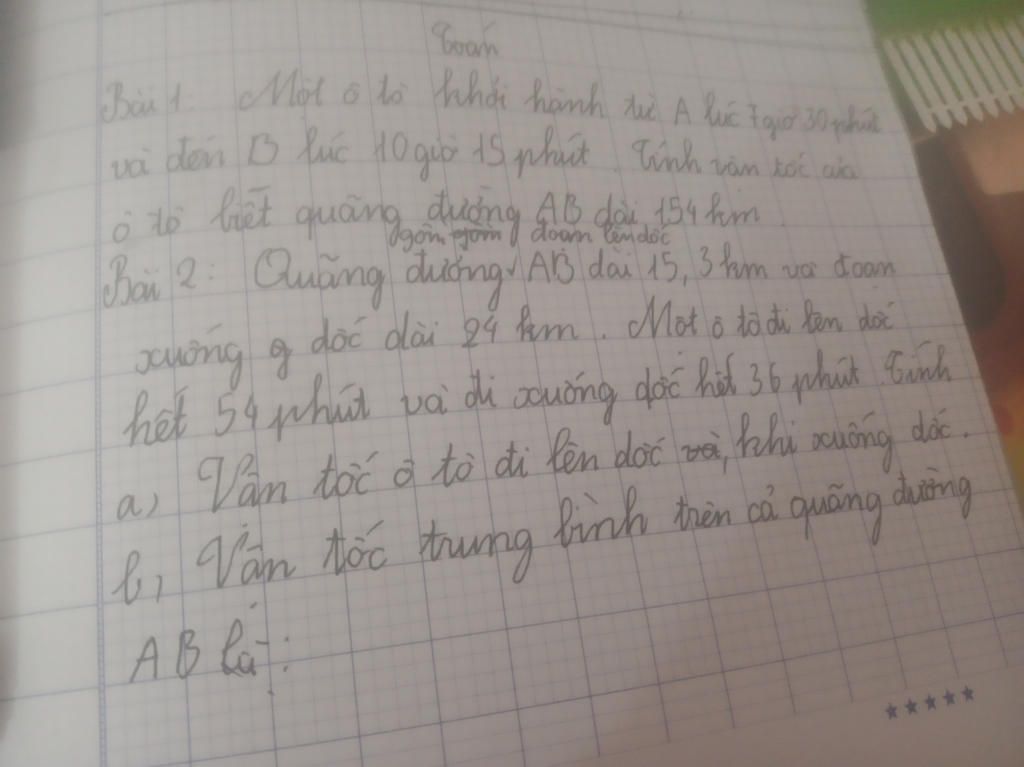 Toán
Bài 1: Một ô tô khởi hành từ A lúc 7 giờ 30 phút
và đến B lúc 10 giờ 15 phút. Tính vân tốc của
ô tô biết quãng đường AB dài 154 km
gồm gồm đoạn lên dốc
Bài 2: Quãng đường AB dài 15,3 km và đoạn
xuống g dốc dài 24 km. Một ô tô đi lên dốc
hết 54 phút và đi xuống dốc hết 36 phút Tính
a, Vân tốc ô tô đi lên dốc và, khi xuống dốc.
b, Vân tốc trung bình trên cả quãng đường
AB là: